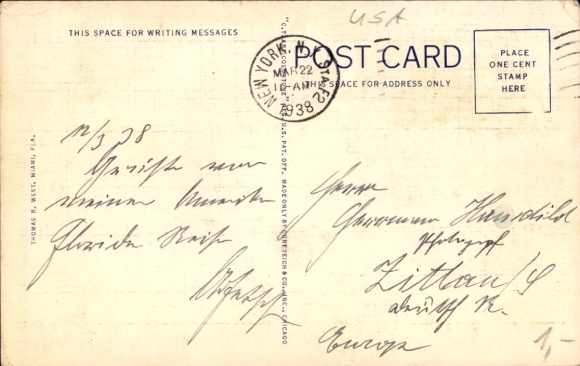 USA
THIS SPACE FOR WRITING MESSAGES
POST CARD
THIS SPACE FOR ADDRESS ONLY
PLACE
ONE CENT
STAMP
HERE
NEW YORK, N.Y. STA.
MAR 22
1938
THOMAS R. WEST, MIAMI, FLA.
"C.T. ART-COLORTONE" REG. U.S. PAT. OFF. MADE ONLY BY CURT TEICH & CO., INC., CHICAGO
Grüße von
meiner Amerika
Florida Reise
Herrn
Hermann
Zittau/S
Europa
1,-